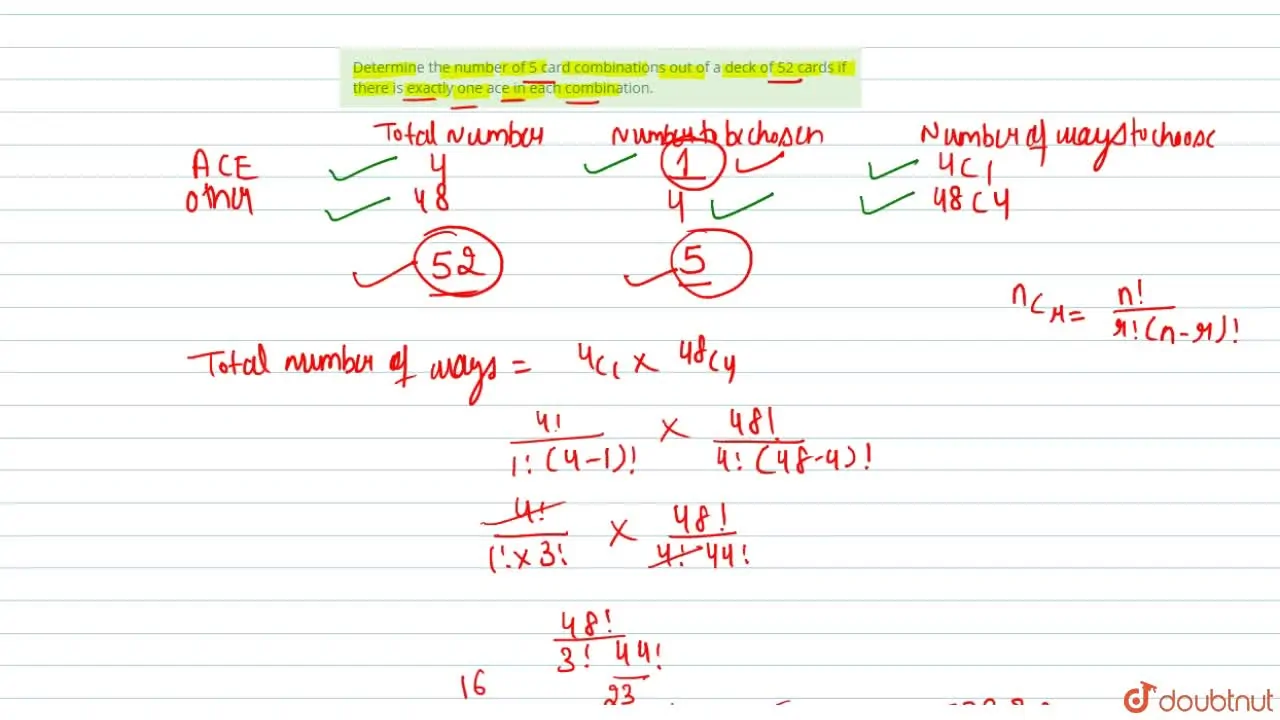 Determine the number of 5 card combinations out of a deck of 52 cards if
there is exactly one ace in each combination.
Total Number Number to be chosen Number of ways to choose
ACE 4 1 4C1
other 48 4 48C4
52 5
nCr = n! / r!(n-r)!
Total number of ways = 4C1 × 48C4
4! / 1!(4-1)! × 48! / 4!(48-4)!
4! / 1!×3! × 48! / 4! 44!
48! / 3! 44!
16 23
doubtnut